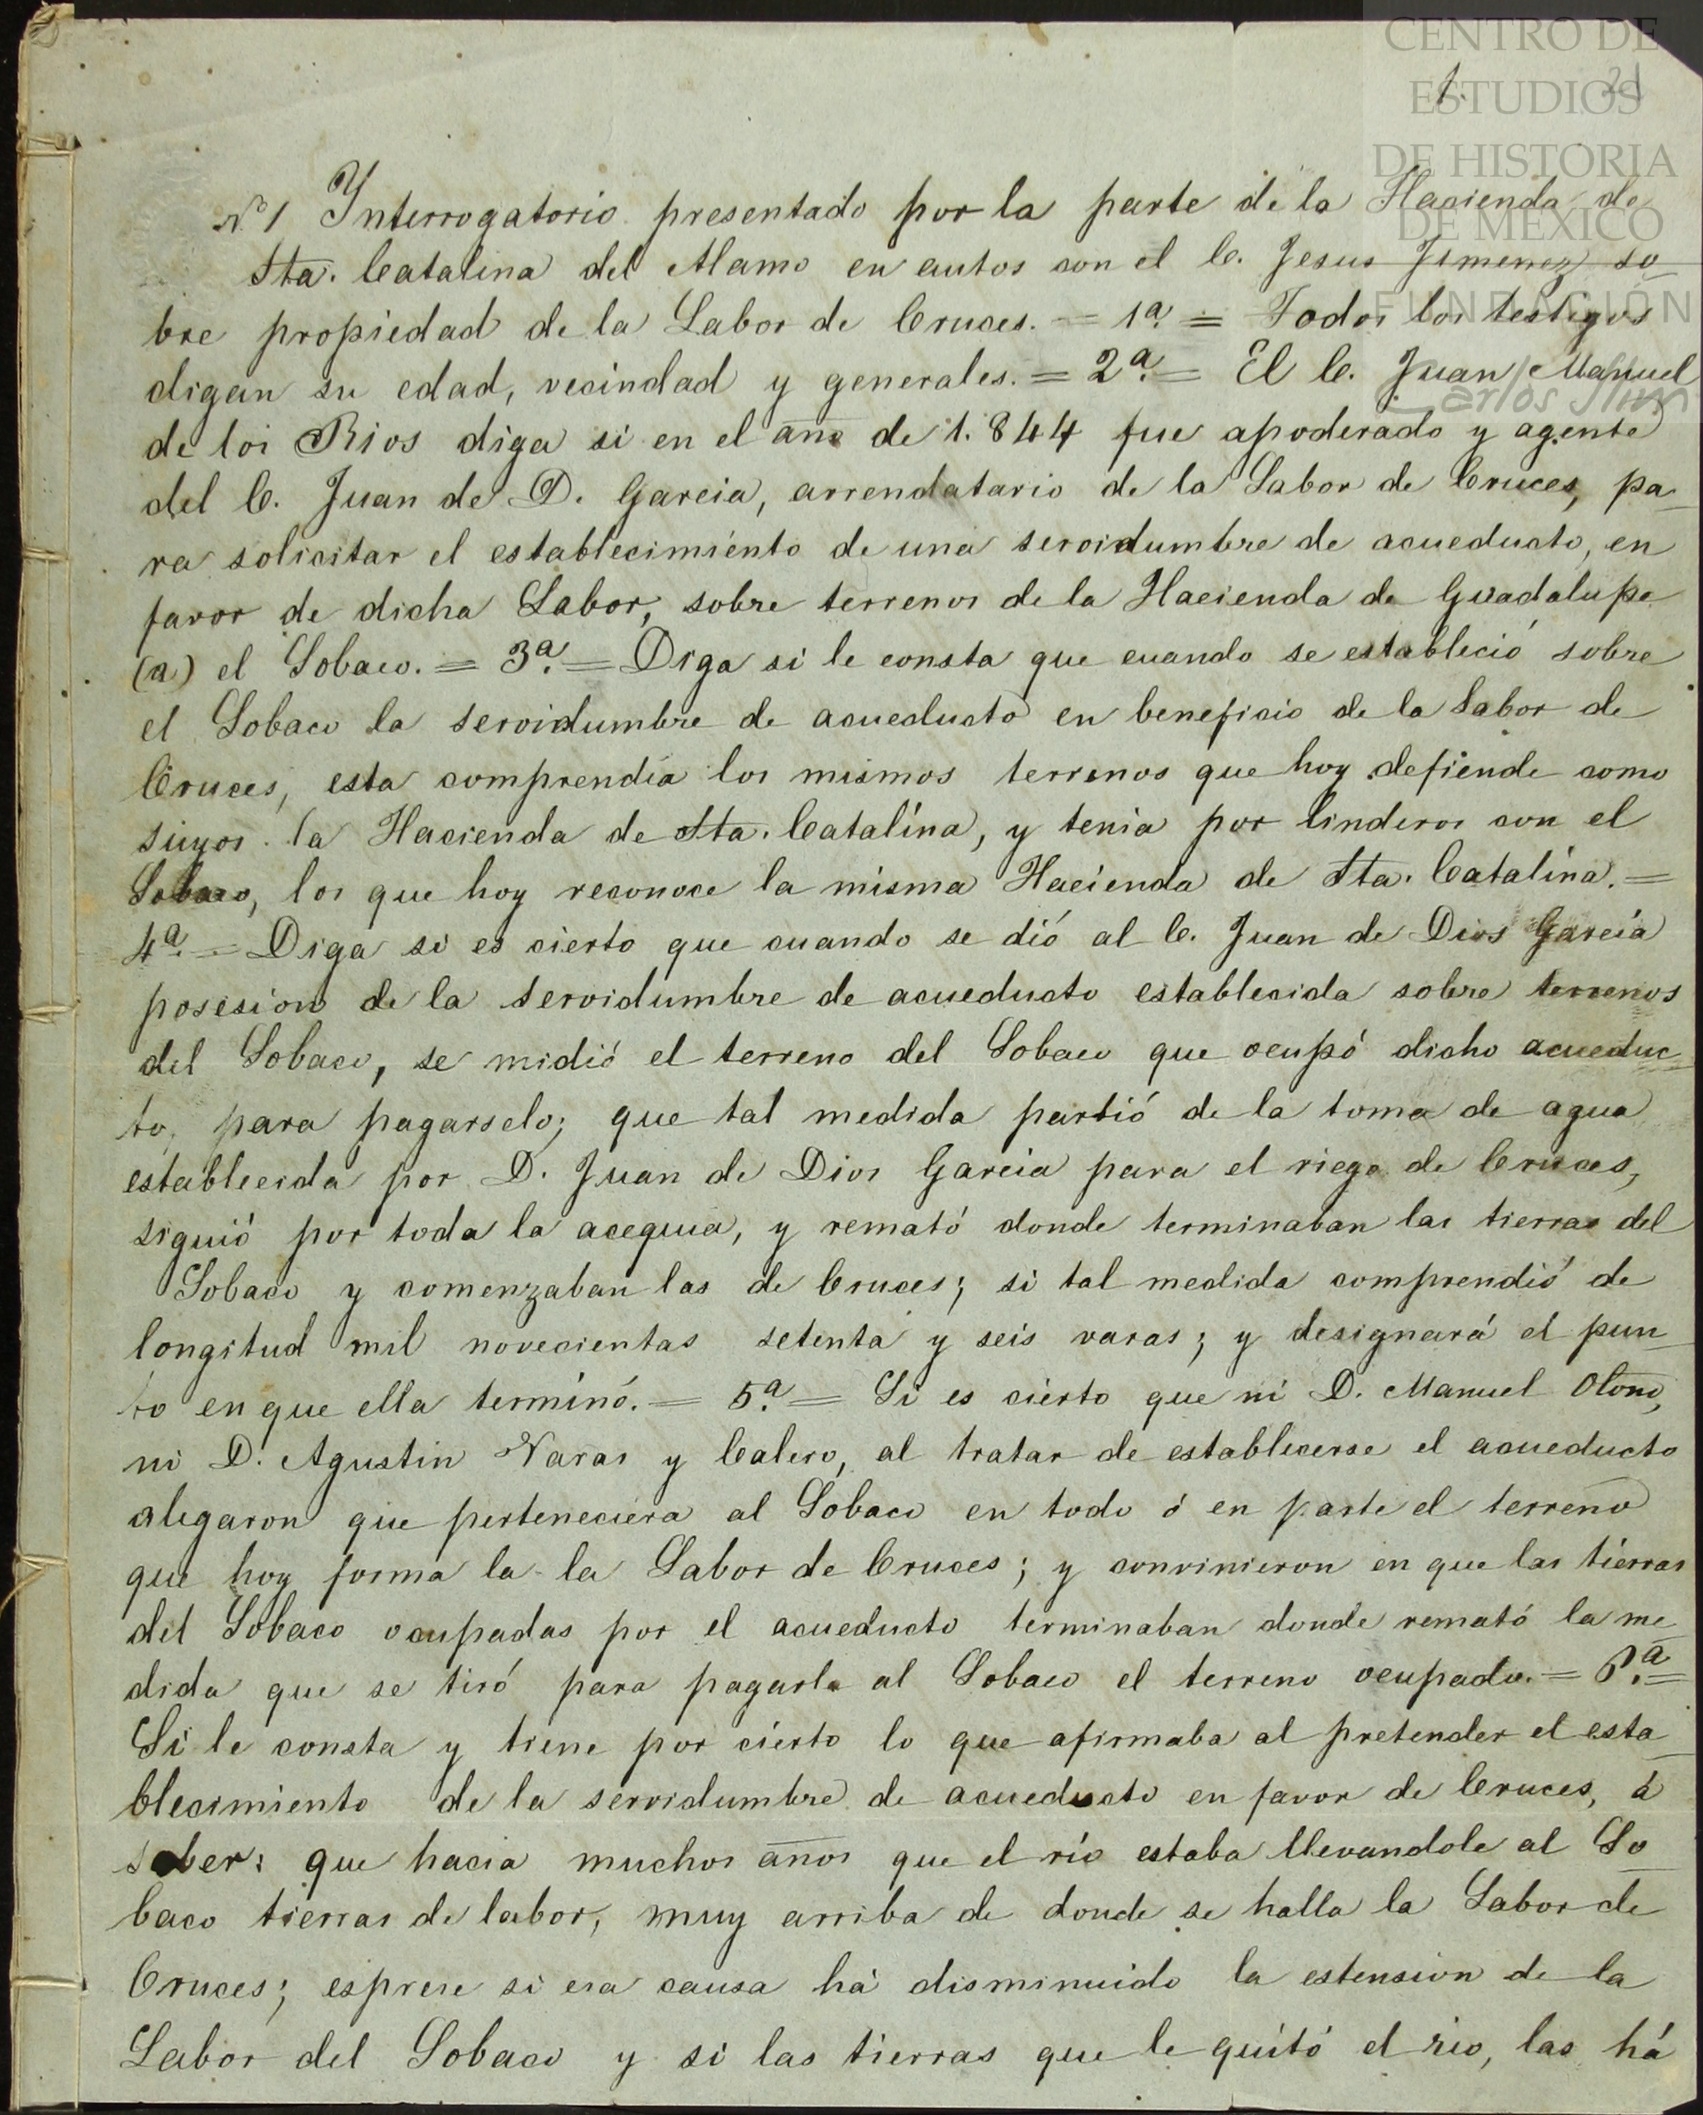 CENTRO DE
ESTUDIOS
DE HISTORIA
DE MEXICO
FUNDACIÓN
Carlos Slim
1. 21
Nº 1 Ynterrogatorio presentado por la parte de la Hacienda de
Sta. Catalina del Alamo en autos con el C. Jesus Jimenez so
bre propiedad de la Labor de Cruces. = 1ª. = Todos los testigos
digan su edad, vecindad y generales. = 2ª. = El C. Juan Manuel
de los Rios diga si en el año de 1.844 fue apoderado y agente
del C. Juan de D. Garcia, arrendatario de la Labor de Cruces, pa_
ra solicitar el establecimiento de una servidumbre de acueducto, en
favor de dicha Labor, sobre terrenos de la Hacienda de Guadalupe
(a) el Sobaco. = 3ª. = Diga si le consta que cuando se estableció sobre
el Sobaco la servidumbre de acueducto en beneficio de la Labor de
Cruces, esta comprendia los mismos terrenos que hoy defiende como
suyos la Hacienda de Sta. Catalina, y tenia por linderos con el
Sobaco, los que hoy reconoce la misma Hacienda de Sta. Catalina. =
4ª. = Diga si es cierto que cuando se dió al C. Juan de Dios Garcia
posesion de la servidumbre de acueducto establecida sobre terrenos
del Sobaco, se midió el terreno del Sobaco que ocupó dicho acueduc_
to, para pagarselo; que tal medida partió de la toma de agua
establecida por D. Juan de Dios Garcia para el riego de Cruces,
siguió por toda la acequia, y remató donde terminaban las tierras del
Sobaco y comenzaban las de Cruces; si tal medida comprendió de
longitud mil novecientas setenta y seis varas; y designará el pun_
to en que ella terminó. = 5ª. = Si es cierto que ni D. Manuel Olono,
ni D. Agustin Naras y Calero, al tratar de establecerse el acueducto
alegaron que perteneciera al Sobaco en todo ó en parte el terreno
que hoy forma la la Labor de Cruces; y convinieron en que las tierras
del Sobaco ocupadas por el acueducto terminaban donde remató la me_
dida que se tiró para pagarle al Sobaco el terreno ocupado. = 6ª. =
Si le consta y tiene por cierto lo que afirmaba al pretender el esta_
blecimiento de la servidumbre de acueducto en favor de Cruces, á
saber: que hacia muchos años que el río estaba llevandole al So_
baco tierras de labor, muy arriba de donde se halla la Labor de
Cruces; esprese si esa causa há disminuido la estension de la
Labor del Sobaco y si las tierras que le quitó el rio, las há